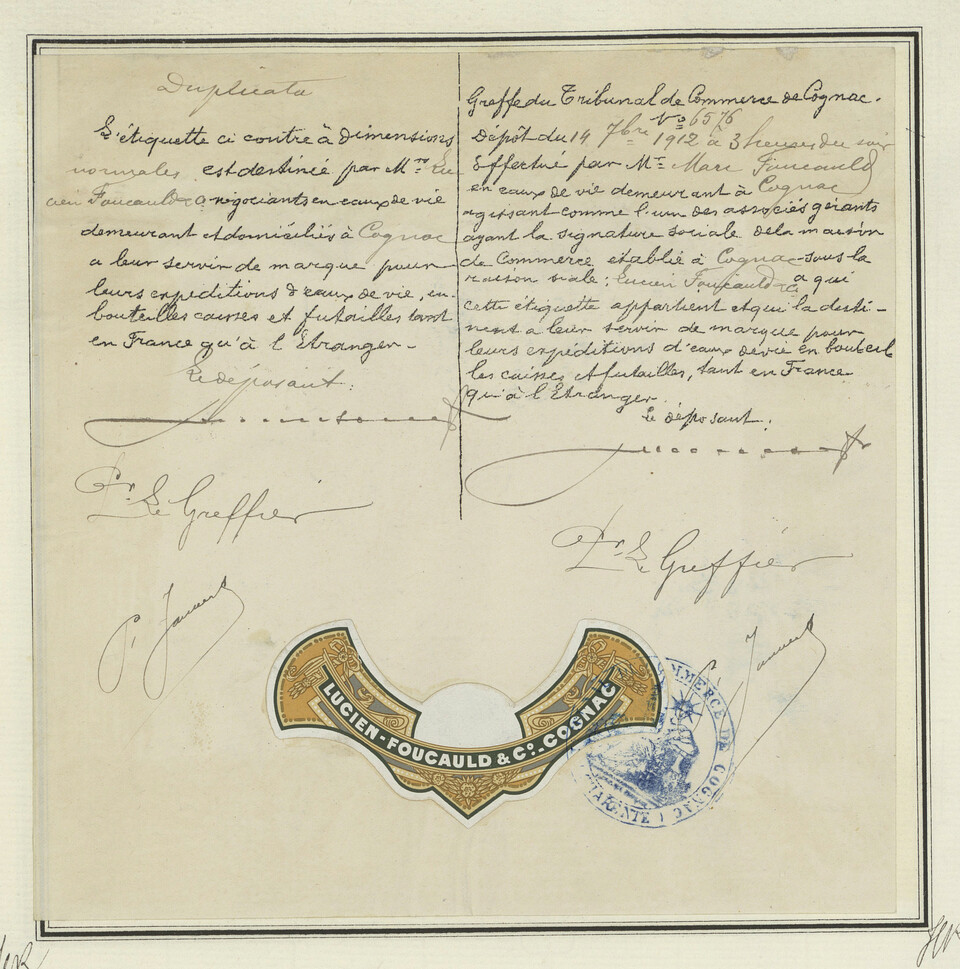 Duplicata
L'étiquette ci contre à dimensions
normales est destinée par Mrs Lu
cien Foucauld & Co négociants en eaux de vie
demeurant et domiciliés à Cognac
a leur servir de marque pour
leurs expeditions d'eaux de vie, en
bouteilles caisses et futailles tant
en France qu'à l'Etranger.
Le déposant:
Pr Le Greffier
Greffe du Tribunal de Commerce de Cognac.
No 6576
Dépôt du 14 7bre 1912 à 3 heures du soir
Effectué par Mr Marc Foucauld
en eaux de vie demeurant à Cognac
agissant comme l'un des associés gérants
ayant la signature sociale de la maison
de Commerce établie à Cognac sous la
raison siale: Lucien Foucauld & Co a qui
cette étiquette appartient et qui la desti-
nent a leur servir de marque pour
leurs expéditions d'eaux de vie en bouteil
les caisses et futailles, tant en France
qu'à l'Etranger.
Le déposant:
Pr Le Greffier
LUCIEN-FOUCAULD & Co.-COGNAC
COMMERCE DE COGNAC
CHARENTE